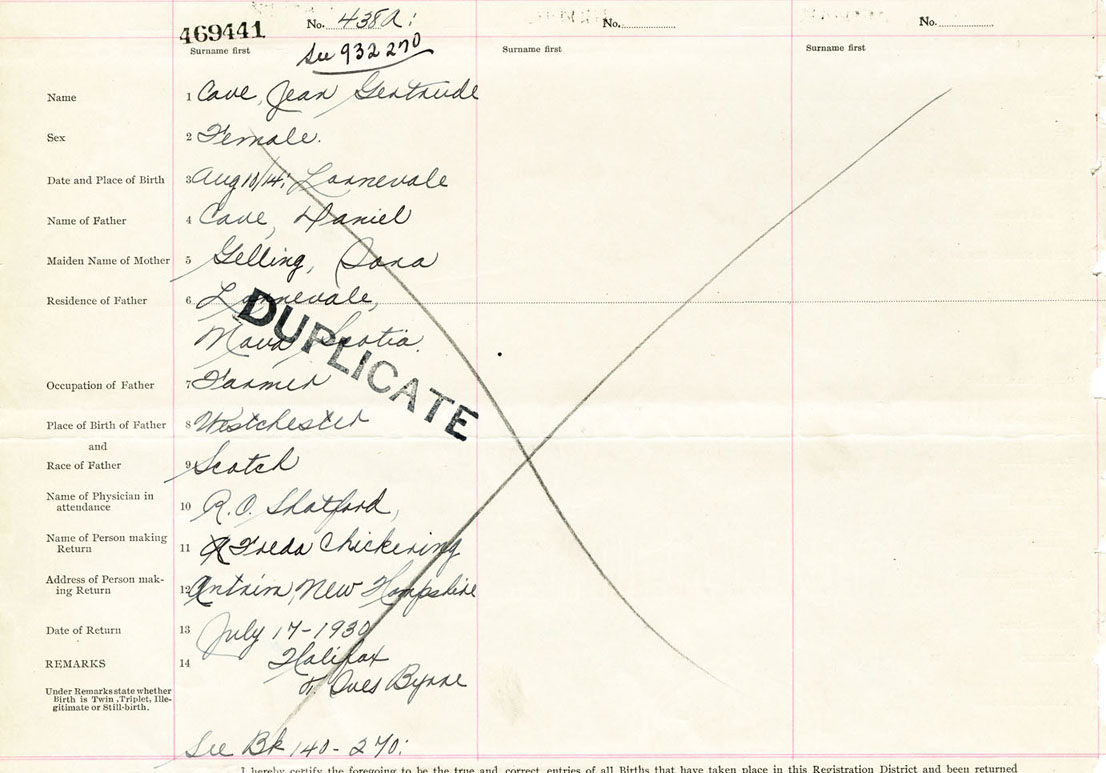 469441
No. 438a.
No.
No.
Surname first
Surname first
Surname first
See 932270
Name 1 Cave, Jean Gertrude
Sex 2 Female.
Date and Place of Birth 3 Aug 10/14; Lornevale
Name of Father 4 Cave, Daniel
Maiden Name of Mother 5 Gelling,
Residence of Father 6 Lornevale,
Nova Scotia.
DUPLICATE
Occupation of Father 7 Farmer
Place of Birth of Father 8 Westchester
and
Race of Father 9 Scotch
Name of Physician in
attendance 10 R.O. Shatford,
Name of Person making
Return 11 Freda Chickering
Address of Person mak-
ing Return 12 Antrim, New Hampshire
Date of Return 13 July 17-1930
REMARKS 14 Halifax
Byrne
Under Remarks state whether
Birth is Twin, Triplet, Ille-
gitimate or Still-birth.
See Bk 140-270.
I hereby certify the foregoing to be the true and correct entries of all Births that have taken place in this Registration District and been returned